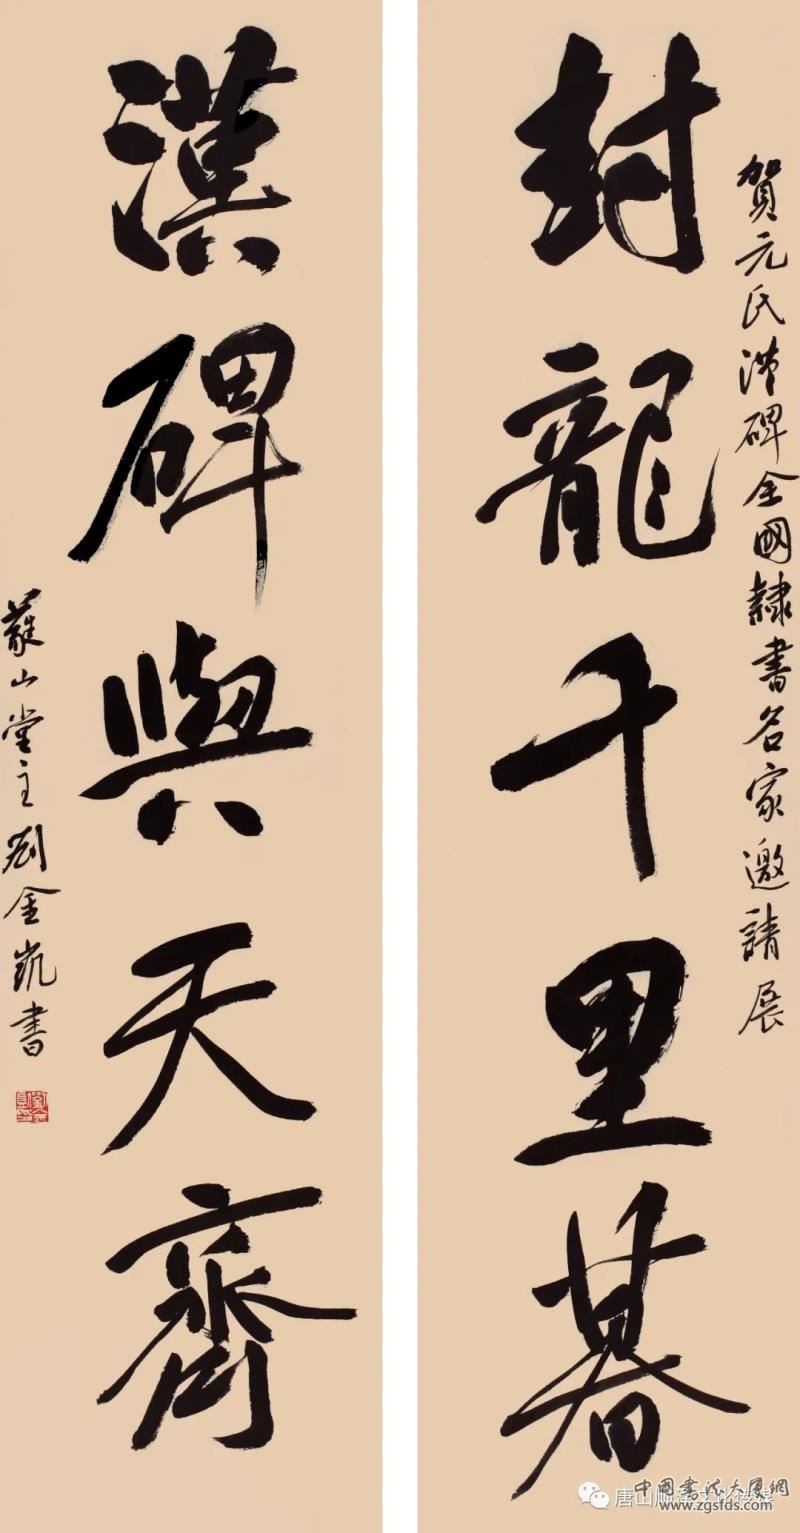 賀元氏漢碑全國隸書名家邀請展
封龍千里暮
漢碑與天齊
山堂主劉金凱書
中国書法大厦網
www.zgsfds.com